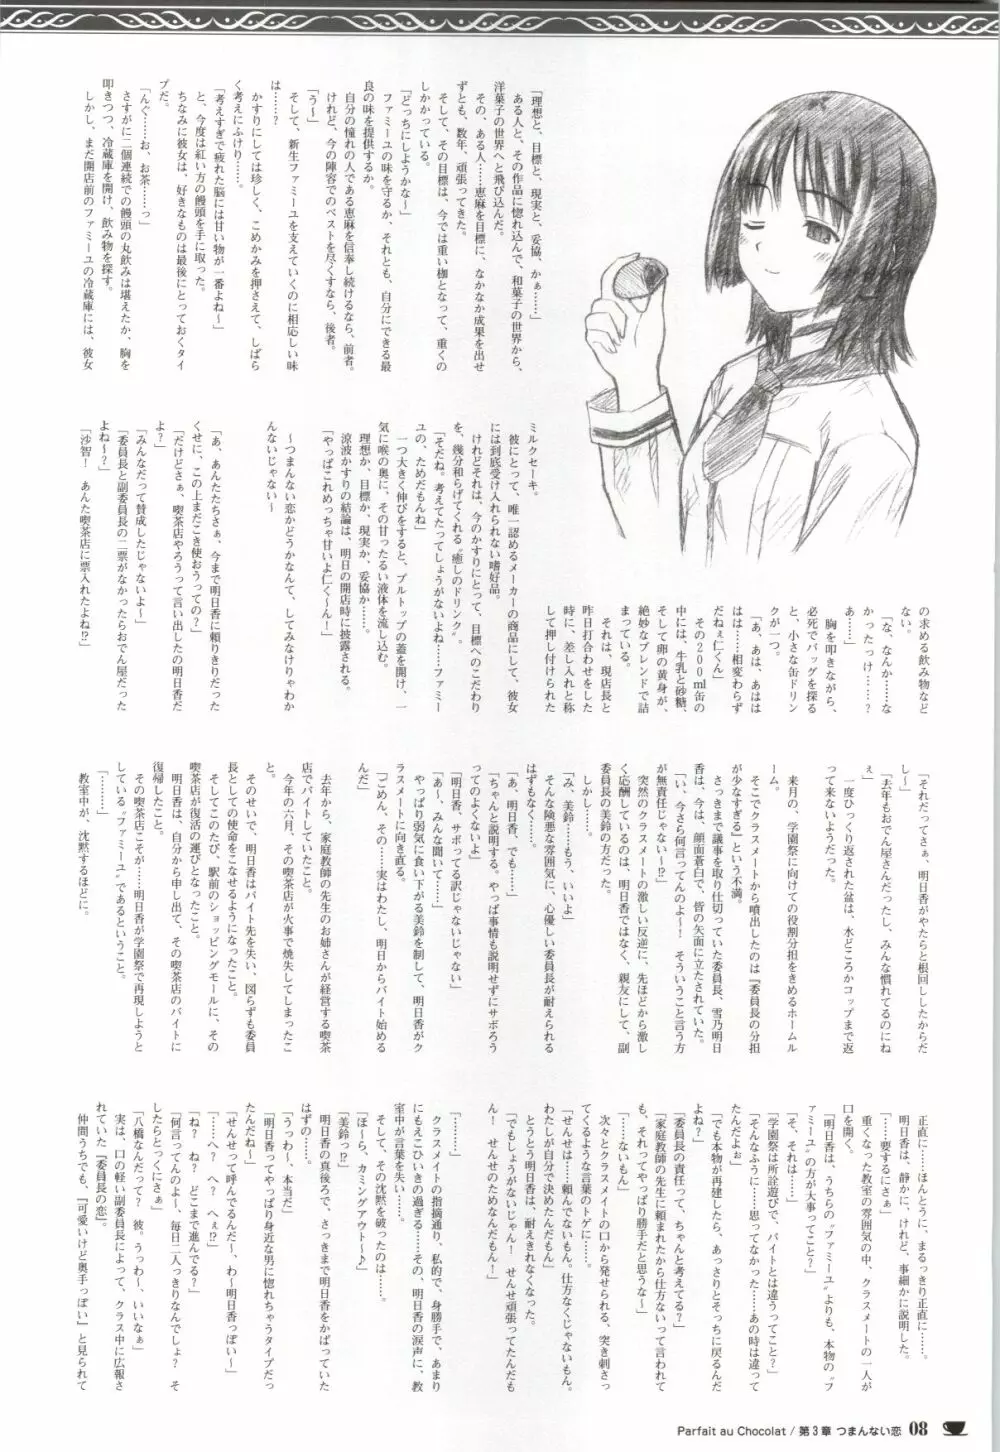 「理想と、目標と、現実と、妥協、かぁ……」
ある人と、その作品に惚れ込んで、和菓子の世界から、
洋菓子の世界へと飛び込んだ。
その、ある人……恵麻を目標に、なかなか成果を出せ
ずとも、数年、頑張ってきた。
そして、その目標は、今では重い枷となって、重くの
しかかっている。
「どっちにしようかな〜」
ファミーユの味を守るか、それとも、自分にできる最
良の味を提供するか。
自分の憧れの人である恵麻を信奉し続けるなら、前者。
けれど、今の陣容でのベストを尽くすなら、後者。
「う〜」
そして、新生ファミーユを支えていくのに相応しい味
は……？
かすりにしては珍しく、こめかみを押さえて、しばら
く考えにふけり……。
「考えすぎで疲れた脳には甘い物が一番よね〜」
と、今度は紅い方の饅頭を手に取った。
ちなみに彼女は、好きなものは最後にとっておくタイ
プだ。
「んぐ……お、お茶……っ」
さすがに二個連続での饅頭の丸飲みは堪えたか、胸を
叩きつつ、冷蔵庫を開け、飲み物を探す。
しかし、まだ開店前のファミーユの冷蔵庫には、彼女
の求める飲み物など
ない。
「な、なんか……な
かったっけ……？
あ……」
胸を叩きながら、
必死でバッグを探る
と、小さな缶ドリン
クが一つ。
「あ、あは、あはは
はは……相変わらず
だねぇ仁くん」
その200ml缶の
中には、牛乳と砂糖、
そして卵の黄身が、
絶妙なブレンドで詰
まっている。
それは、現店長と
昨日打合わせをした
時に、差し入れと称
して押し付けられた
ミルクセーキ。
彼にとって、唯一認めるメーカーの商品にして、彼女
には到底受け入れられない嗜好品。
けれどそれは、今のかすりにとって、目標へのこだわり
を、幾分和らげてくれる“癒しのドリンク”。
「そだね。考えてたってしょうがないよね……ファミー
ユの、ためだもんね」
一つ大きく伸びをすると、プルトップの蓋を開け、一
気に喉の奥に、その甘ったるい液体を流し込む。
理想か、目標か、現実か、妥協か……。
涼波かすりの結論は、明日の開店時に披露される。
「やっぱこれめっちゃ甘いよ仁く〜ん！」
〜つまんない恋かどうかなんて、してみなけりゃわか
んないじゃない〜
「あ、あんたたちさぁ、今まで明日香に頼りきりだった
くせに、この上まだこき使おうっての？」
「だけどさぁ、喫茶店やろうって言い出したの明日香だ
よ？」
「みんなだって賛成したじゃないよ〜」
「委員長と副委員長の二票がなかったらおでん屋だった
よね〜？」
「沙智！　あんた喫茶店に票入れたよね!?
「それだってさぁ、明日香がやたらと根回ししたからだ
し〜」
「去年もおでん屋さんだったし、みんな慣れてるのにね
ぇ」
一度ひっくり返された盆は、水どころかコップまで返
って来ないようだった。
来月の、学園祭に向けての役割分担をきめるホームル
ーム。
そこでクラスメートから噴出したのは『委員長の分担
が少なすぎる』という不満。
さっきまで議事を取り仕切っていた委員長、雪乃明日
香は、今は、顔面蒼白で、皆の矢面に立たされていた。
「い、今さら何言ってんのよ〜！　そういうこと言う方
が無責任じゃない〜!?
突然のクラスメートの激しい反逆に、先ほどから激し
く応酬しているのは、明日香ではなく、親友にして、副
委員長の美鈴の方だった。
しかし……。
「み、美鈴……もう、いいよ」
そんな険悪な雰囲気に、心優しい委員長が耐えられる
はずもなく……。
「あ、明日香、でも……」
「ちゃんと説明する。やっぱ事情も説明せずにサボろう
ってのよくないよ」
「明日香、サボってる訳じゃないじゃない」
「あ〜、みんな聞いて……」
やっぱり弱気に食い下がる美鈴を制して、明日香がク
ラスメートに向き直る。
「ごめん、その……実はわたし、明日からバイト始める
んだ」
去年から、家庭教師の先生のお姉さんが経営する喫茶
店でバイトしていたこと。
今年の六月、その喫茶店が火事で焼失してしまったこ
と。
そのせいで、明日香はバイト先を失い、図らずも委員
長としての使命をこなせるようになったこと。
そしてこのたび、駅前のショッピングモールに、その
喫茶店が復活の運びとなったこと。
明日香は、自分から申し出て、その喫茶店のバイトに
復帰したこと。
その喫茶店こそが……明日香が学園祭で再現しようと
している“ファミーユ”であるということ。
「………」
教室中が、沈黙するほどに。
正直に……ほんとうに、まるっきり正直に……。
明日香は、静かに、けれど、事細かに説明した。
「……要するにさぁ」
重くなった教室の雰囲気の中、クラスメートの一人が
口を開く。
「明日香は、うちらの“ファミーユ”よりも、本物の“フ
ァミーユ”の方が大事ってこと？」
「そ、それは……」
「学園祭は所詮遊びで、バイトとは違うってこと？」
「そんなふうに……思ってなかった……あの時は違って
たんだよぉ」
「でも本物が再建したら、あっさりとそっちに戻るんだ
よね？」
「委員長の責任って、ちゃんと考えてる？」
「家庭教師の先生に頼まれたから仕方ないって言われて
も、それってやっぱり勝手だと思うな〜」
「……ないもん」
次々とクラスメイトの口から発せられる、突き刺さっ
てくるような言葉のトゲに……。
「せんせは……頼んでないもん。仕方なくじゃないもん。
わたしが自分で決めたんだもん」
とうとう明日香は、耐えきれなくなった。
「でもしょうがないじゃん！　せんせ頑張ってたんだも
ん！　せんせのためなんだもん！」
「………」
クラスメイトの指摘通り、私的で、身勝手で、あまり
にもえこひいきの過ぎる……その、明日香の涙声に、教
室中が言葉を失い……。
そして、その沈黙を破ったのは……。
「ほ〜ら、カミングアウト〜♪」
「美鈴っ!?
明日香の真後ろで、さっきまで明日香をかばっていた
はずの……。
「うっわ〜、本当だ」
「明日香ってやっぱり身近な男に惚れちゃうタイプだっ
たんだね〜」
「せんせって呼んでるんだ〜、わ〜明日香っぽい〜」
「……へ？　へ？　へぇ!?
「ね？　ね？　どこまで進んでる？」
「何言ってんのよ〜、毎日二人っきりなんでしょ？　そ
したらとっくにさぁ」
「八橋なんだって？　彼。うっわ〜、いいなぁ」
実は、口の軽い副委員長によって、クラス中に広報さ
れていた『委員長の恋』。
仲間うちでも、『可愛いけど奥手っぽい』と見られて
Parfait au Chocolat / 第3章 つまんない恋 08